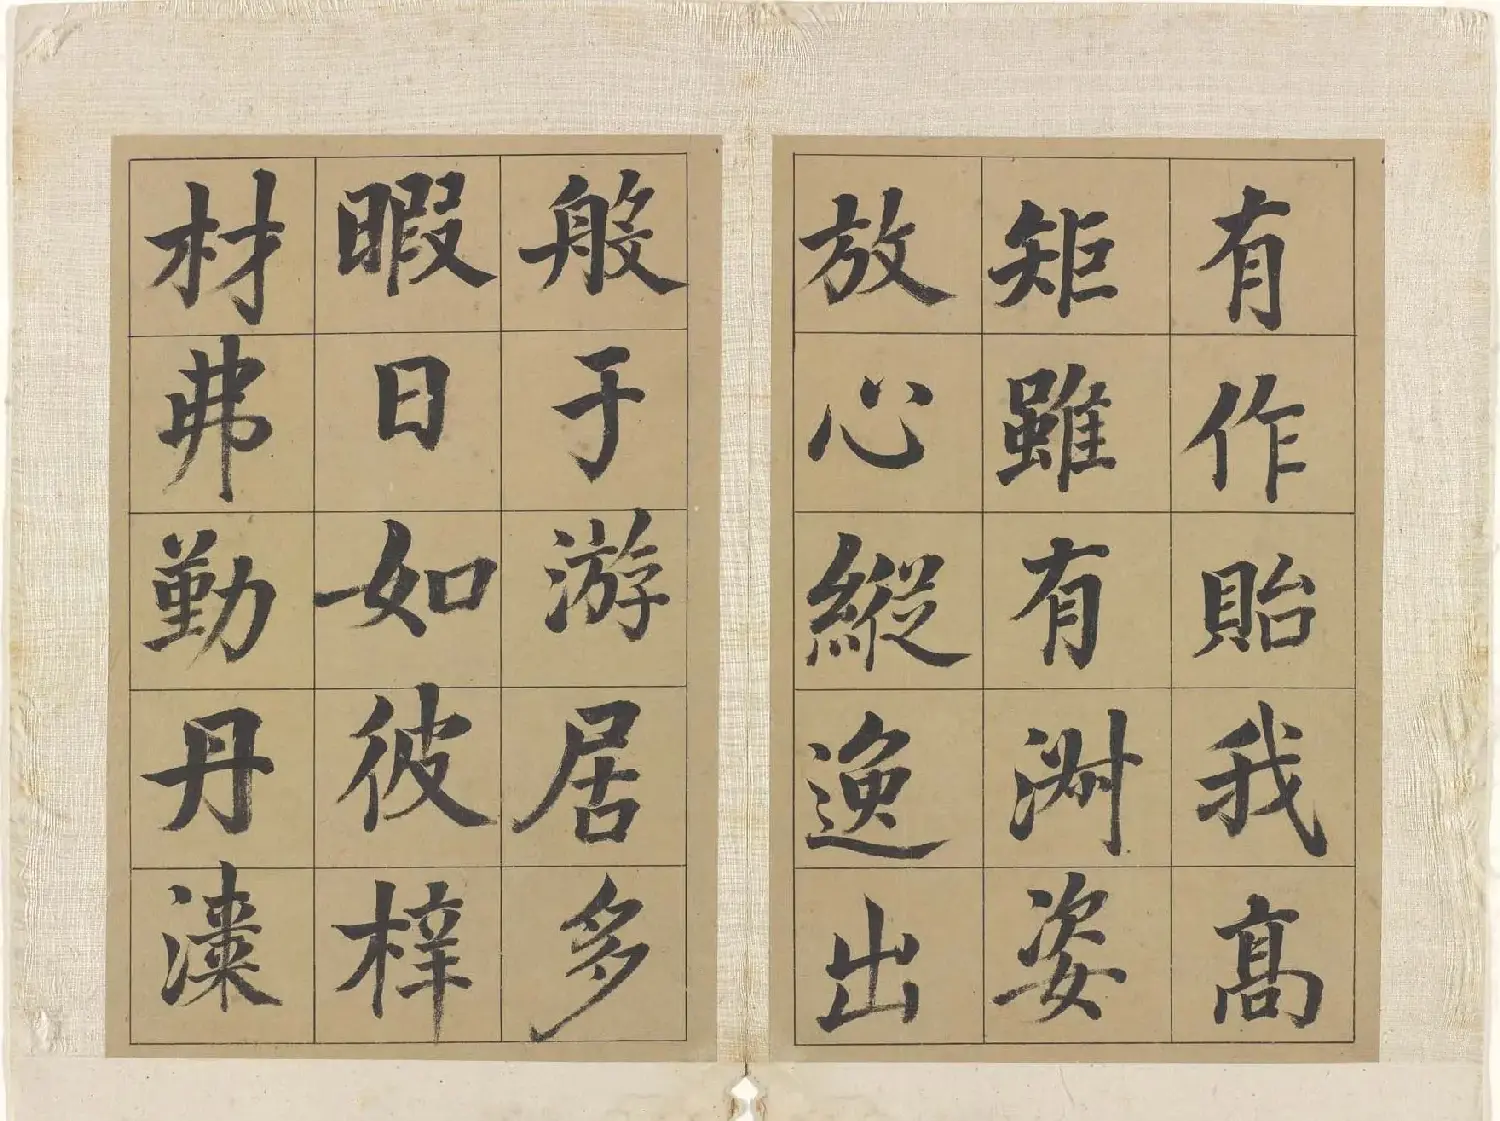 有作貽我髙
矩雖有淑姿
放心縱逸出
般于游居多
暇日如彼梓
材弗勤丹漆